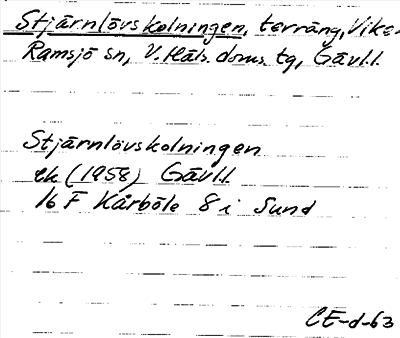 Stjärnlövskolningen, terräng, Viken
Ramsjö sn, V. Häls. doms. tg, Gävl.l.
Stjärnlövskolningen
ek (1958) Gävl.l
16 F Kårböle 8 i Sund
CE-d-63